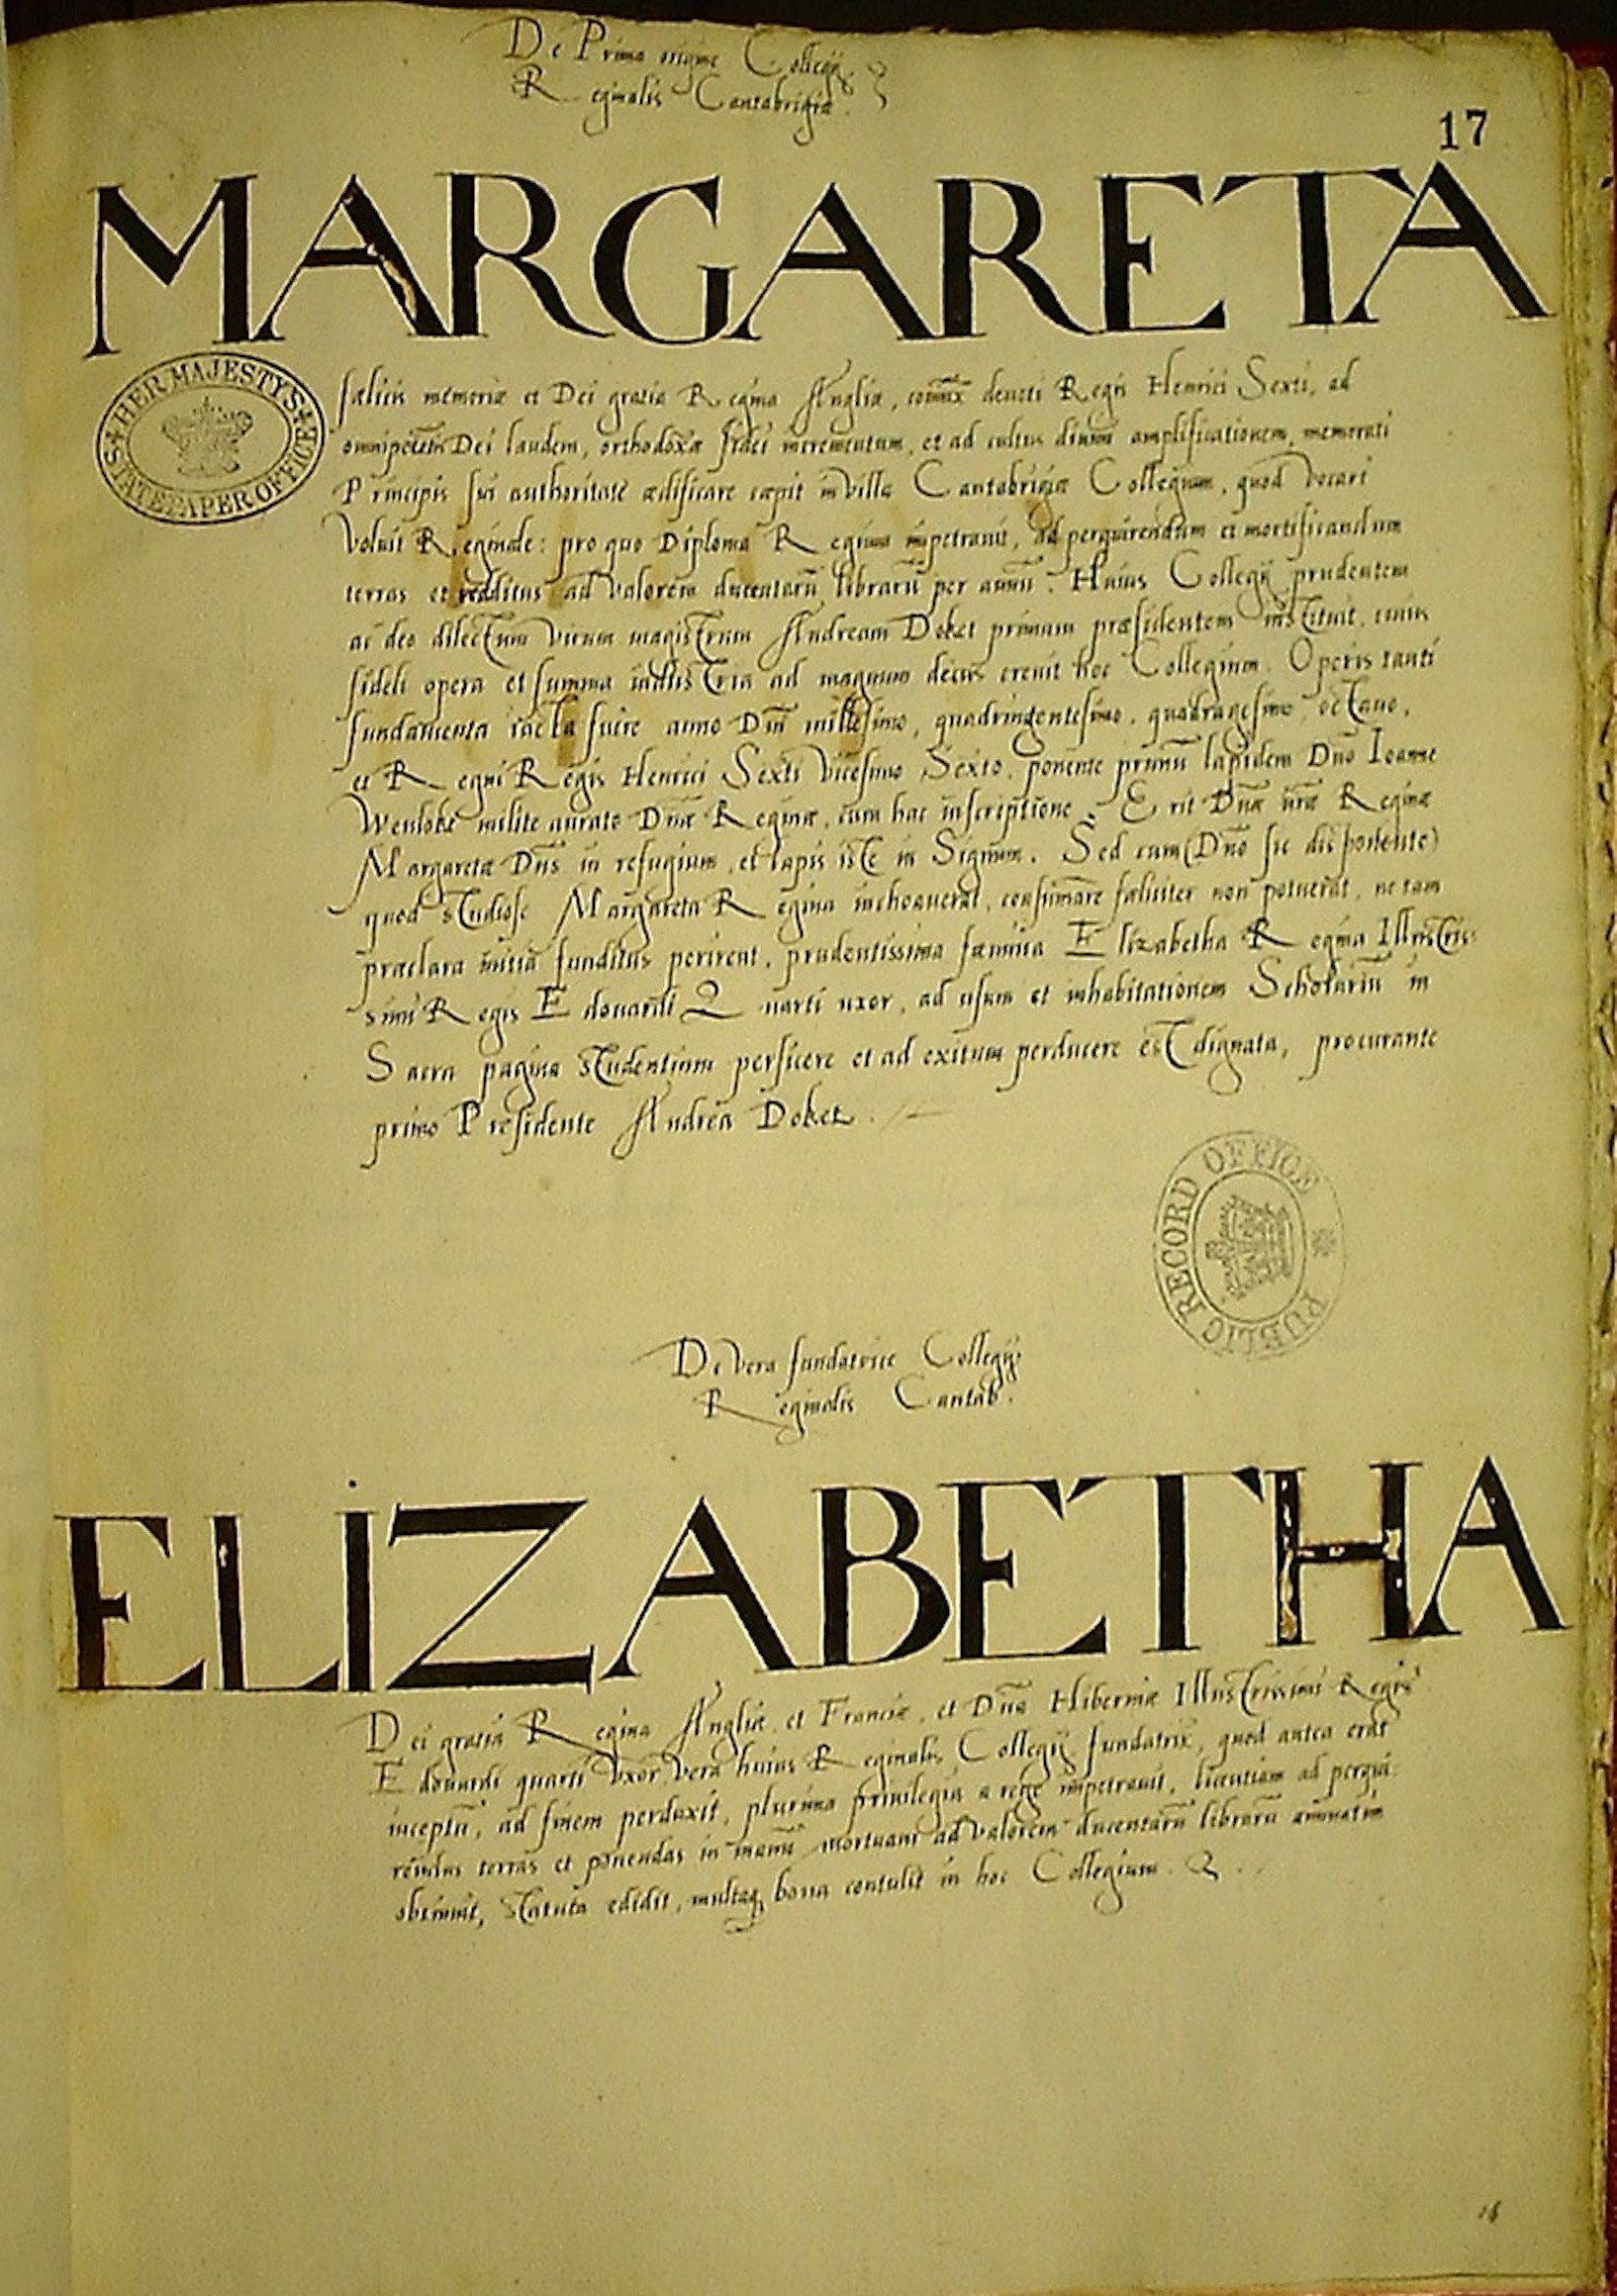 De Prima origine Collegij
Reginalis Cantabrigiæ.
17
MARGARETA
HER MAJESTY'S STATE PAPER OFFICE
fælicis memoriæ et Dei gratia Regina Angliæ, coniūx devoti Regis Henrici Sexti, ad
omnipotētis Dei laudem, orthodoxæ fidei incrementum, et ad cultus divini amplificationem, memorati
Principis sui authoritate ædificare cæpit in villa Cantabrigiæ Collegium, quod vocari
voluit Reginale: pro quo Diploma Regium impetravit, ad perquirendum et mortificandum
terras et redditus ad valorem ducentarū librarū per annū. Huius Collegij prudentem
ac deo dilectum virum magistrum Andream Doket primum præsidentem instituit, cuius
fideli opera et summa industria ad magnum decus crevit hoc Collegium. Operis tanti
fundamenta iacta fuere anno Dm̄ millesimo, quadringentesimo, quadragesimo, octavo,
et Regni Regis Henrici Sexti vicesimo Sexto, ponente primū lapidem Dn̄o Ioanne
Wenloke milite aurato Dn̄æ Reginæ, cum hac inscriptione. Erit Dn̄æ nr̄æ Reginæ
Margaretæ Dn̄s in refugium, et lapis iste in Signum. Sed cum (Dn̄o sic disponente)
quod studiose Margareta Regina inchoaverat, consūmare fæliciter non potuerat, ne tam
præclara initia funditus perirent, prudentissima fæmina Elizabetha Regina Illustris-
simi Regis Edouardi Quarti uxor, ad usum et inhabitationem Scholariū in
Sacra pagina studentium perficere et ad exitum perducere est dignata, procurante
primo Presidente Andrea Doket.
PUBLIC RECORD OFFICE
De vera fundatrice Collegij
Reginalis Cantab.
ELIZABETHA
Dei gratia Regina Angliæ, et Franciæ, et Dn̄a Hiberniæ Illustrissimi Regis
Edouardi quarti uxor, vera huius Reginalis Collegij fundatrix, quod antea erat
inceptū, ad finem perduxit, plurima privilegia a rege impetravit, licentiam ad perqui-
rendas terras et ponendas in manū mortuam ad valorem ducentarū librarū annuatim
obtinuit, statuta edidit, multaq; bona contulit in hoc Collegium.